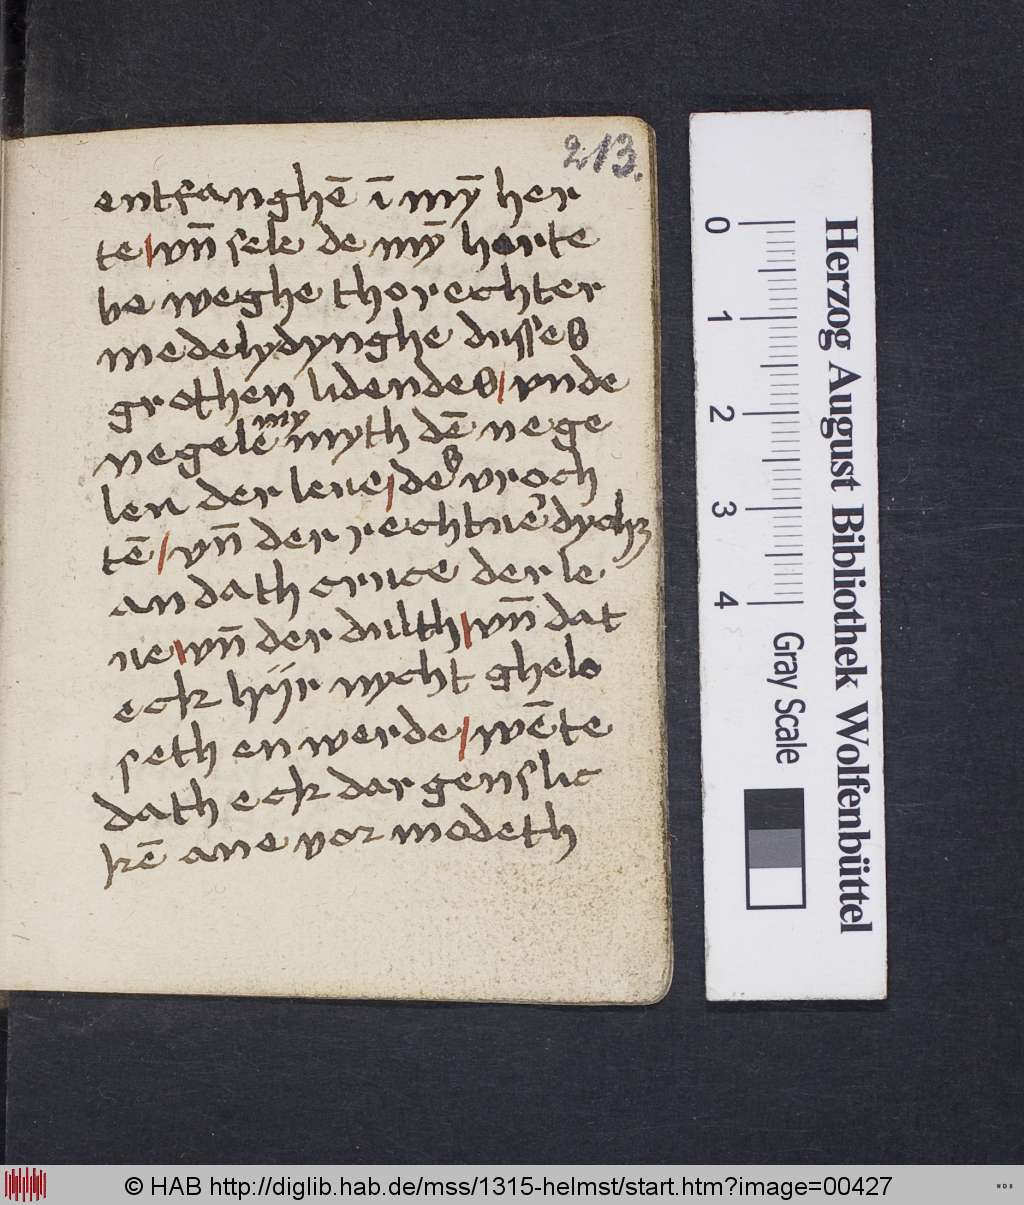 213.
entfanghē ī mȳ her
te/ vn̄ sele de mȳ herte
be weghe tho rechter
medelydynghe dusses
grothen lidendes/ vnde
negelē my myth dē nege
len der leue/ des vroch
tē/ vn̄ der rechtue dych
an dath cruce der le
ue/ vn̄ der dulth/ vn̄ dat
eck hÿr nycht ghelo
seth en werde/ wēte
dath eck dar genslic
kē ane vor modeth
0
1
2
3
4
Gray Scale
Herzog August Bibliothek Wolfenbüttel
© HAB http://diglib.hab.de/mss/1315-helmst/start.htm?image=00427